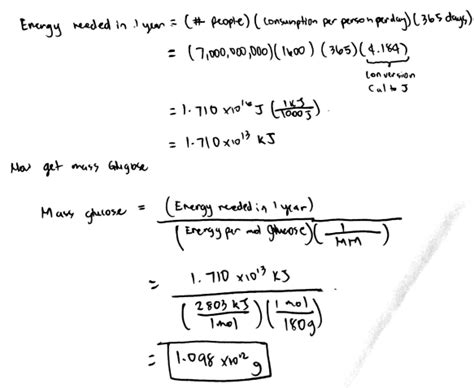 Energy needed in 1 year = (# people) (consumption per person per day) (365 days)
= (7,000,000,000) (1600) (365) (4.184)
conversion
Cal to J
= 1.710 x10^16 J (1KJ/1000J)
= 1.710 x10^13 KJ
Now get mass Glucose
Mass glucose = (Energy needed in 1 year) / (Energy per mol glucose) (1/MM)
= 1.710 x10^13 KJ / (2803 KJ/1mol) (1 mol/180g)
= 1.098 x10^12 g